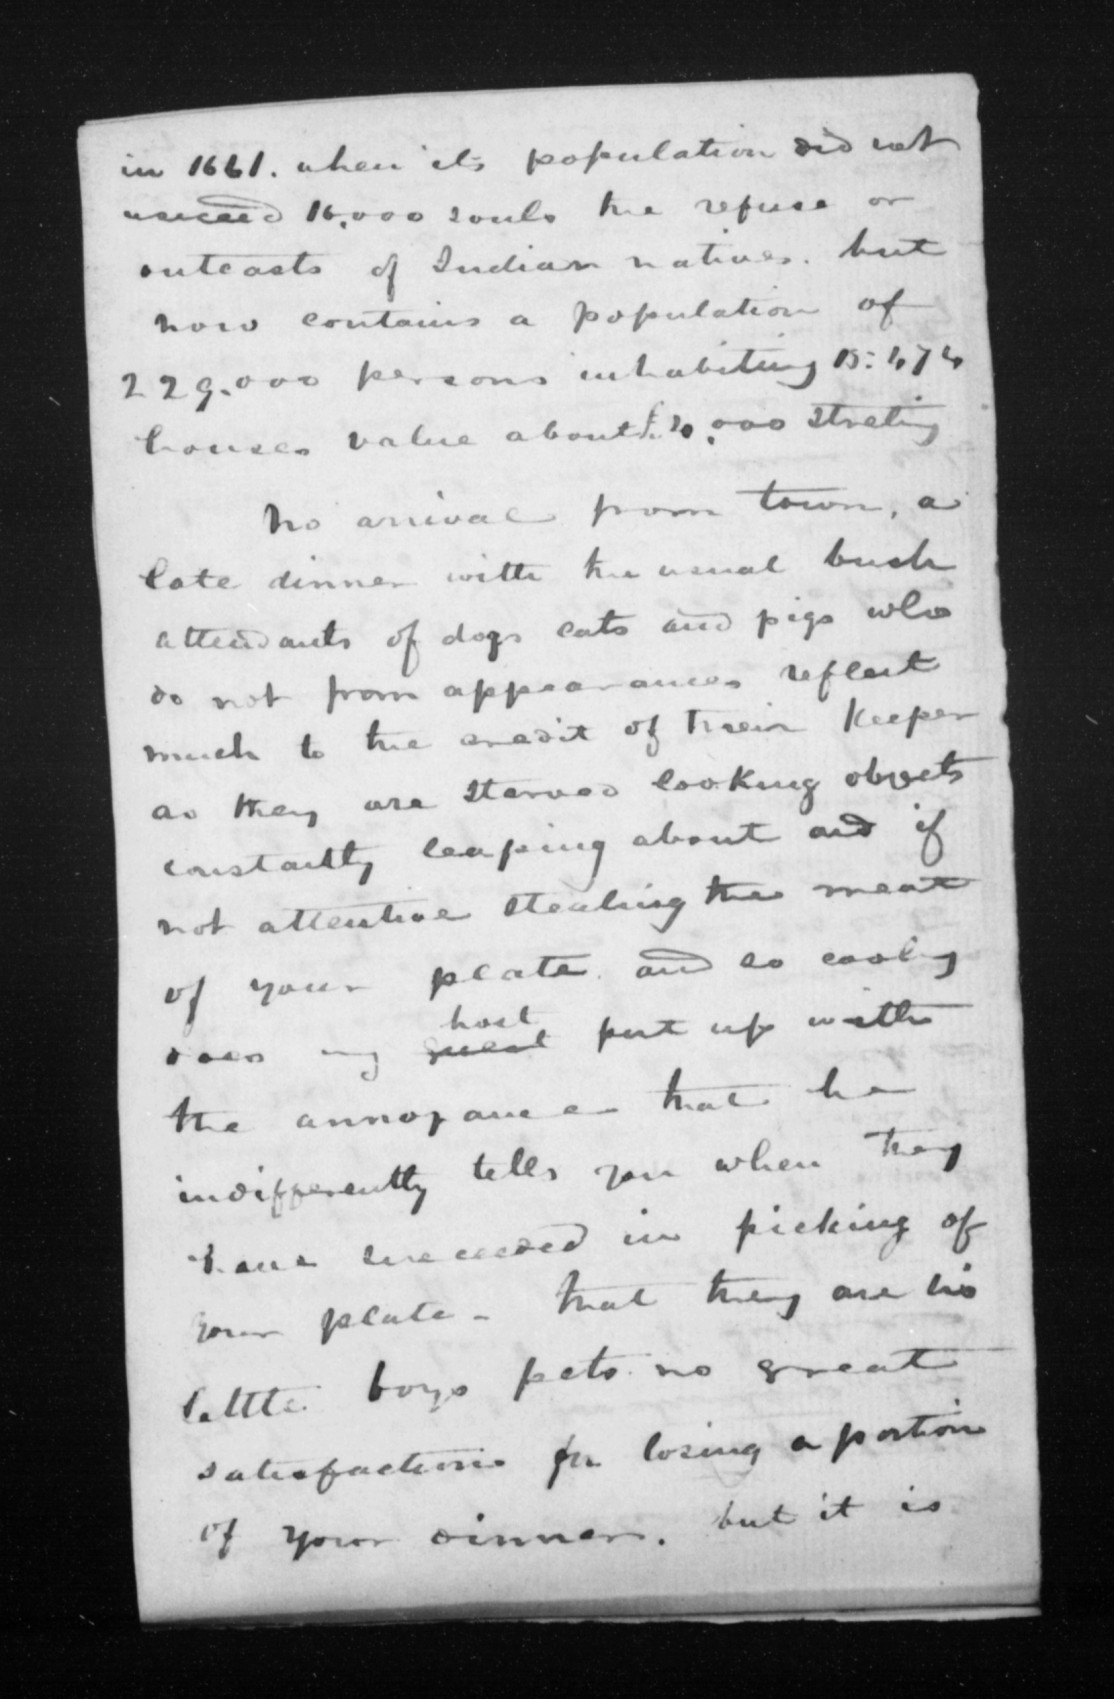 in 1661. when its population did not
exceed 16,000 souls the refuse or
outcasts of Indian natives. but
now contains a population of
229.000 persons inhabiting
houses value about ,000 Streling
No arrival from town, a
late dinner with the usual bush
attendants of dogs cats and pigs who
do not from appearances reflect
much to the credit of their Keeper
as they are starved looking objects
constantly leaping about and if
not attentive stealing the meat
of your plate. and so cooly
does my host put up with
the annoyance that he
indifferently tells you when they
have succeeded in picking of
your plate - that they are his
little boys pets. no great
satisfaction for losing a portion
of your dinner. but it is